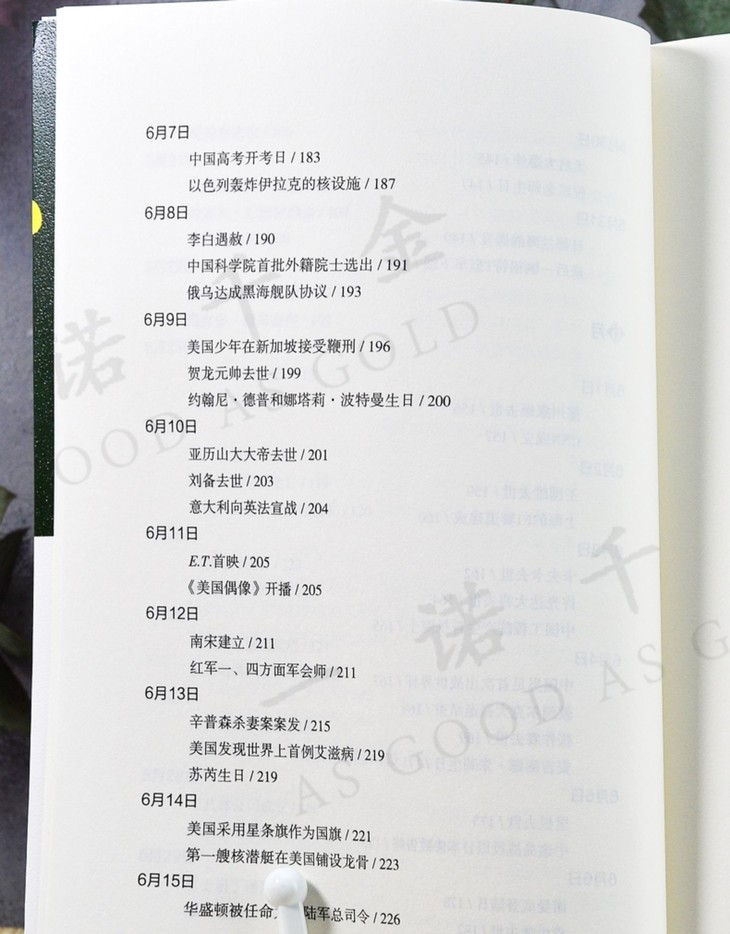 6月7日
中国高考开考日 / 183
以色列轰炸伊拉克的核设施 / 187
6月8日
李白遇赦 / 190
中国科学院首批外籍院士选出 / 191
俄乌达成黑海舰队协议 / 193
6月9日
美国少年在新加坡接受鞭刑 / 196
贺龙元帅去世 / 199
约翰尼·德普和娜塔莉·波特曼生日 / 200
6月10日
亚历山大大帝去世 / 201
刘备去世 / 203
意大利向英法宣战 / 204
6月11日
E.T.首映 / 205
《美国偶像》开播 / 205
6月12日
南宋建立 / 211
红军一、四方面军会师 / 211
6月13日
辛普森杀妻案案发 / 215
美国发现世界上首例艾滋病 / 219
苏芮生日 / 219
6月14日
美国采用星条旗作为国旗 / 221
第一艘核潜艇在美国铺设龙骨 / 223
6月15日
华盛顿被任命 陆军总司令 / 226
诺千金
OOD AS GOLD
一诺千
AS GOOD AS G